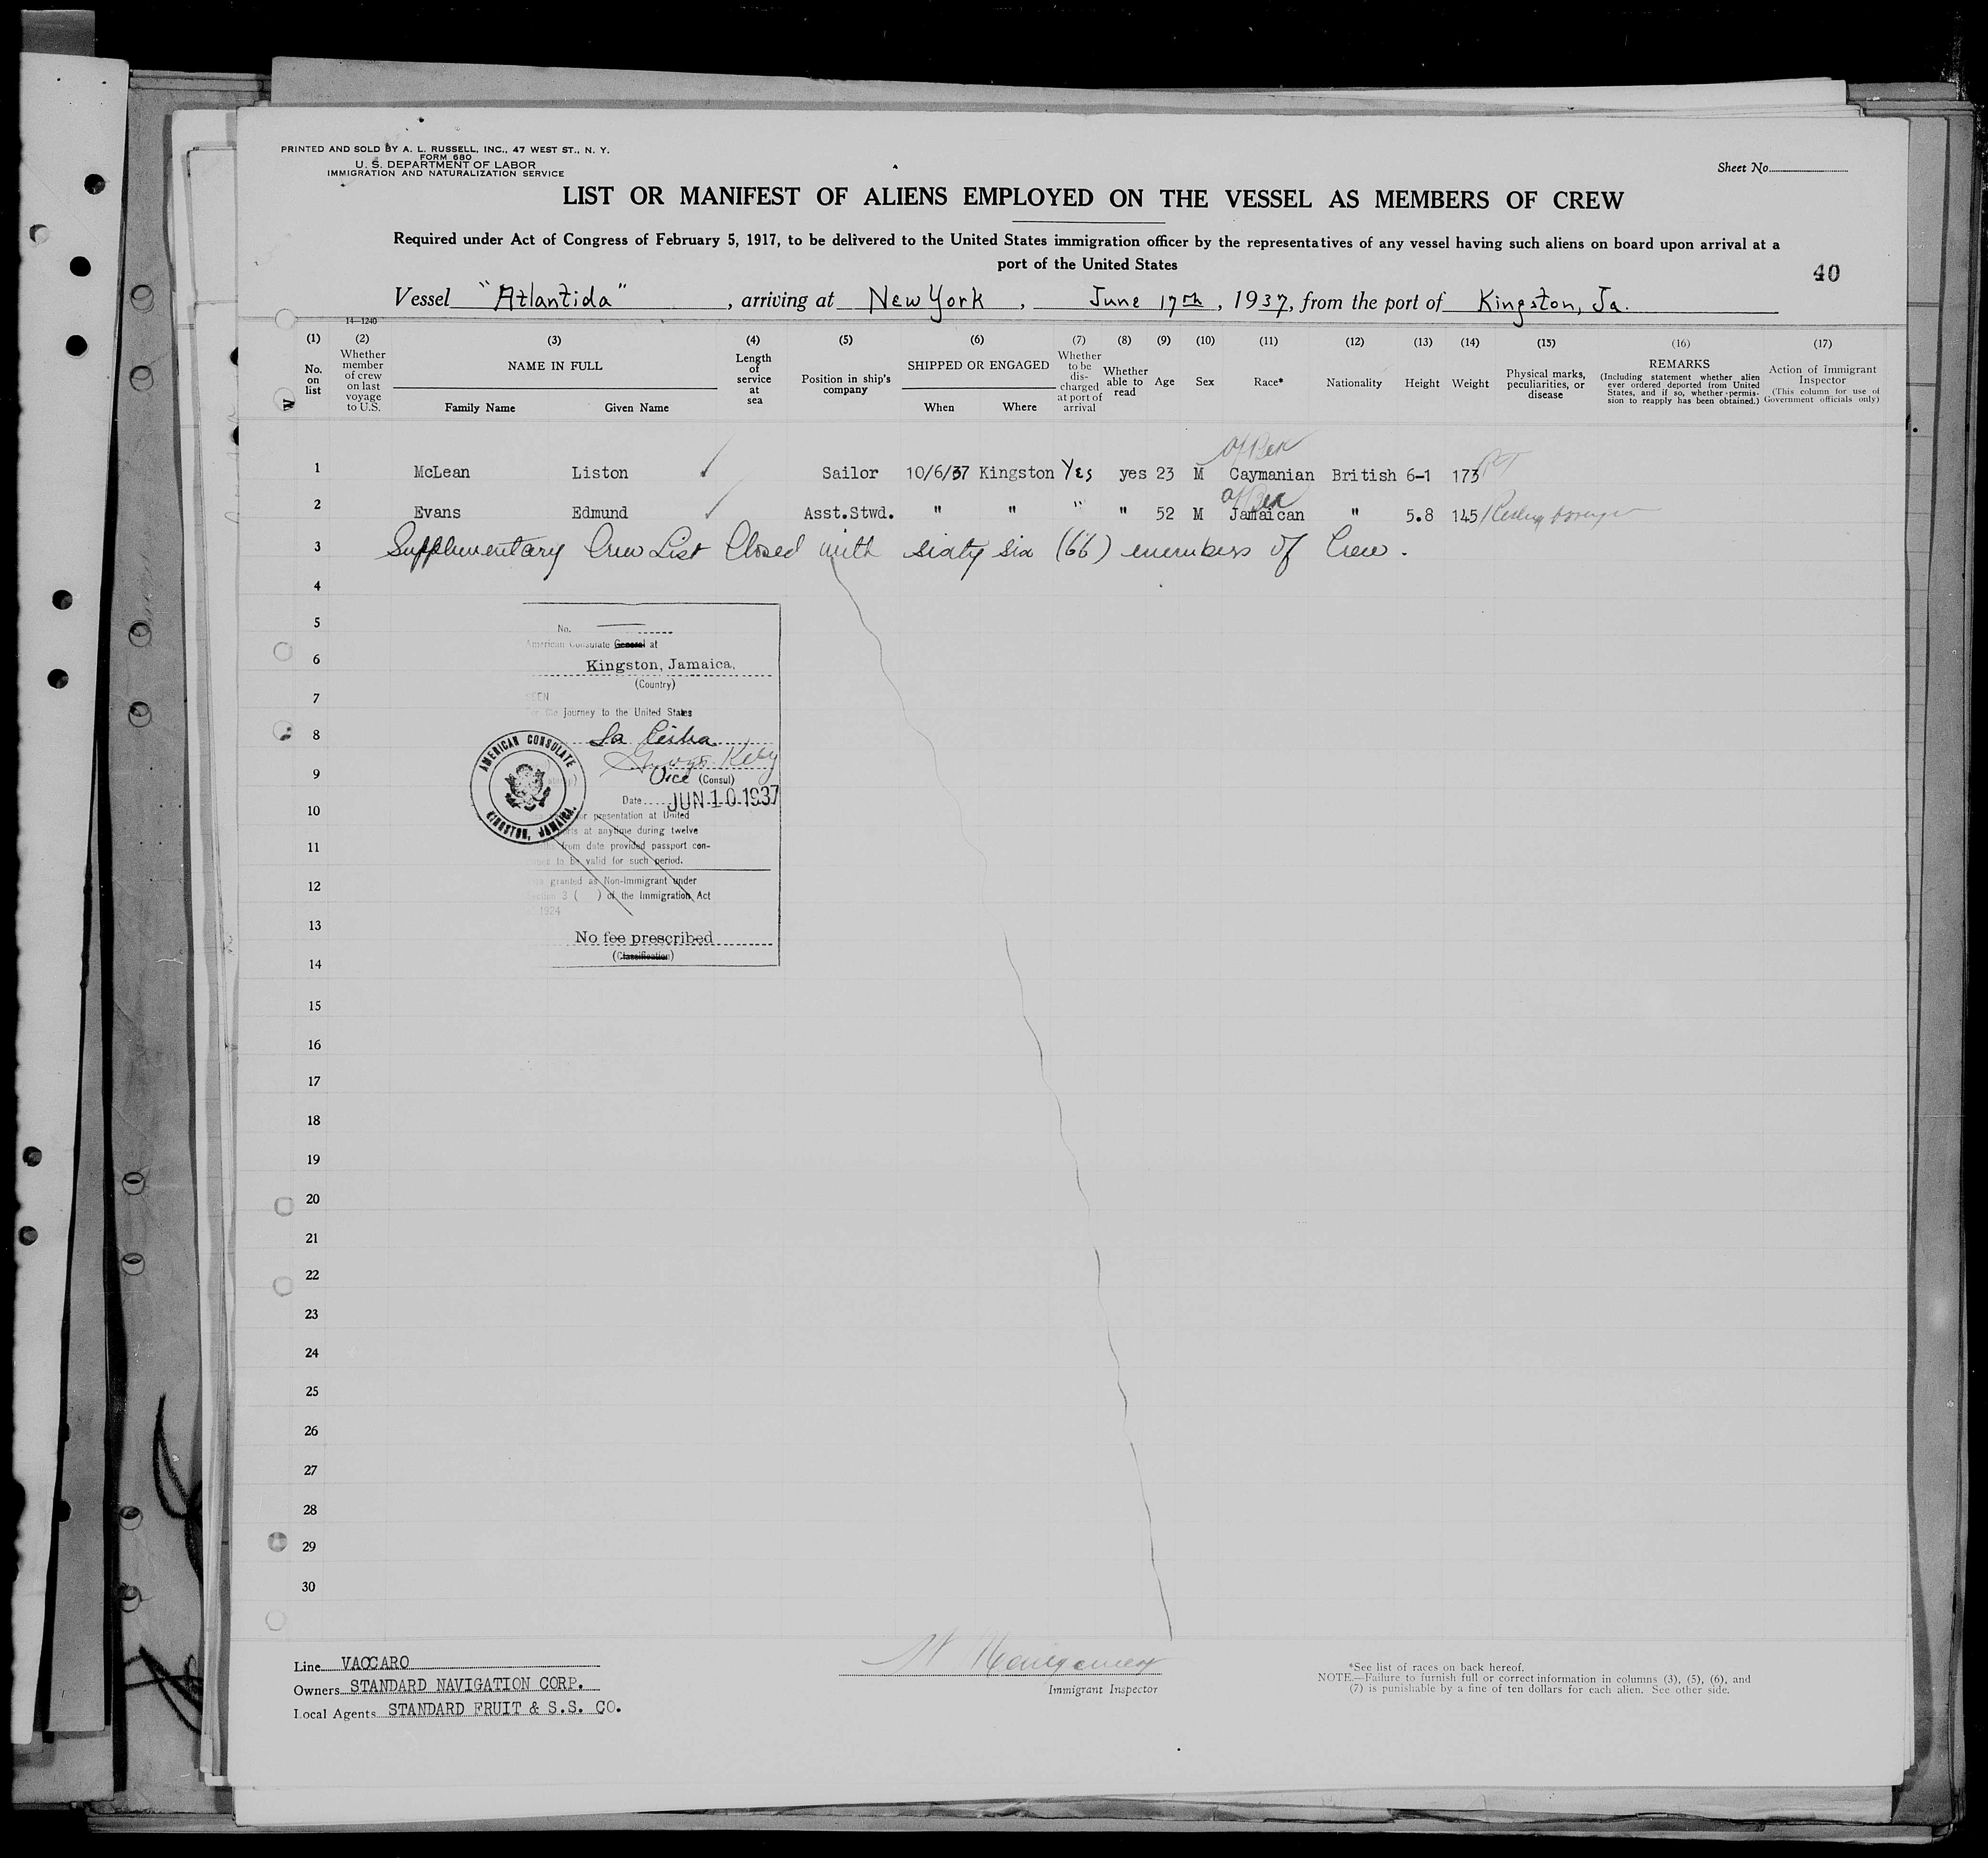 PRINTED AND SOLD BY A. L. RUSSELL, INC., 47 WEST ST., N. Y.
FORM 680
U. S. DEPARTMENT OF LABOR
IMMIGRATION AND NATURALIZATION SERVICE
Sheet No.
LIST OR MANIFEST OF ALIENS EMPLOYED ON THE VESSEL AS MEMBERS OF CREW
Required under Act of Congress of February 5, 1917, to be delivered to the United States immigration officer by the representatives of any vessel having such aliens on board upon arrival at a
port of the United States
40
Vessel "Atlantida", arriving at New York, June 17th, 1937, from the port of Kingston, Ja.
14—1240
(1) (2) (3) (4) (5) (6) (7) (8) (9) (10) (11) (12) (13) (14) (15) (16) (17)
No. on list
Whether member of crew on last voyage to U.S.
NAME IN FULL
Family Name Given Name
Length of service at sea
Position in ship's company
SHIPPED OR ENGAGED
When Where
Whether to be discharged at port of arrival
Whether able to read
Age
Sex
Race*
Nationality
Height
Weight
Physical marks, peculiarities, or disease
REMARKS
(Including statement whether alien ever ordered deported from United States, and if so, whether permission to reapply has been obtained.)
Action of Immigrant Inspector
(This column for use of Government officials only)
1 McLean Liston Sailor 10/6/37 Kingston Yes yes 23 M Caymanian British 6-1 173
2 Evans Edmund Asst.Stwd. " " " " 52 M Jamaican " 5.8 145
3 Supplementary Crew List Closed with sixty six (66) members of Crew.
4
5
6
7
8
9
10
11
12
13
14
15
16
17
18
19
20
21
22
23
24
25
26
27
28
29
30
No.
American Consulate General at
Kingston, Jamaica,
(Country)
SEEN
For the journey to the United States
La Ceiba
Vice (Consul)
Date JUN 10 1937
AMERICAN CONSULATE
KINGSTON, JAMAICA.
for presentation at United
ports at anytime during twelve
from date provided passport con-
to be valid for such period.
granted as Non-Immigrant under
Section 3 ( ) of the Immigration Act
1924
No fee prescribed
(Classification)
Line VACCARO
Owners STANDARD NAVIGATION CORP.
Local Agents STANDARD FRUIT & S.S. CO.
Immigrant Inspector
*See list of races on back hereof.
NOTE.—Failure to furnish full or correct information in columns (3), (5), (6), and
(7) is punishable by a fine of ten dollars for each alien. See other side.